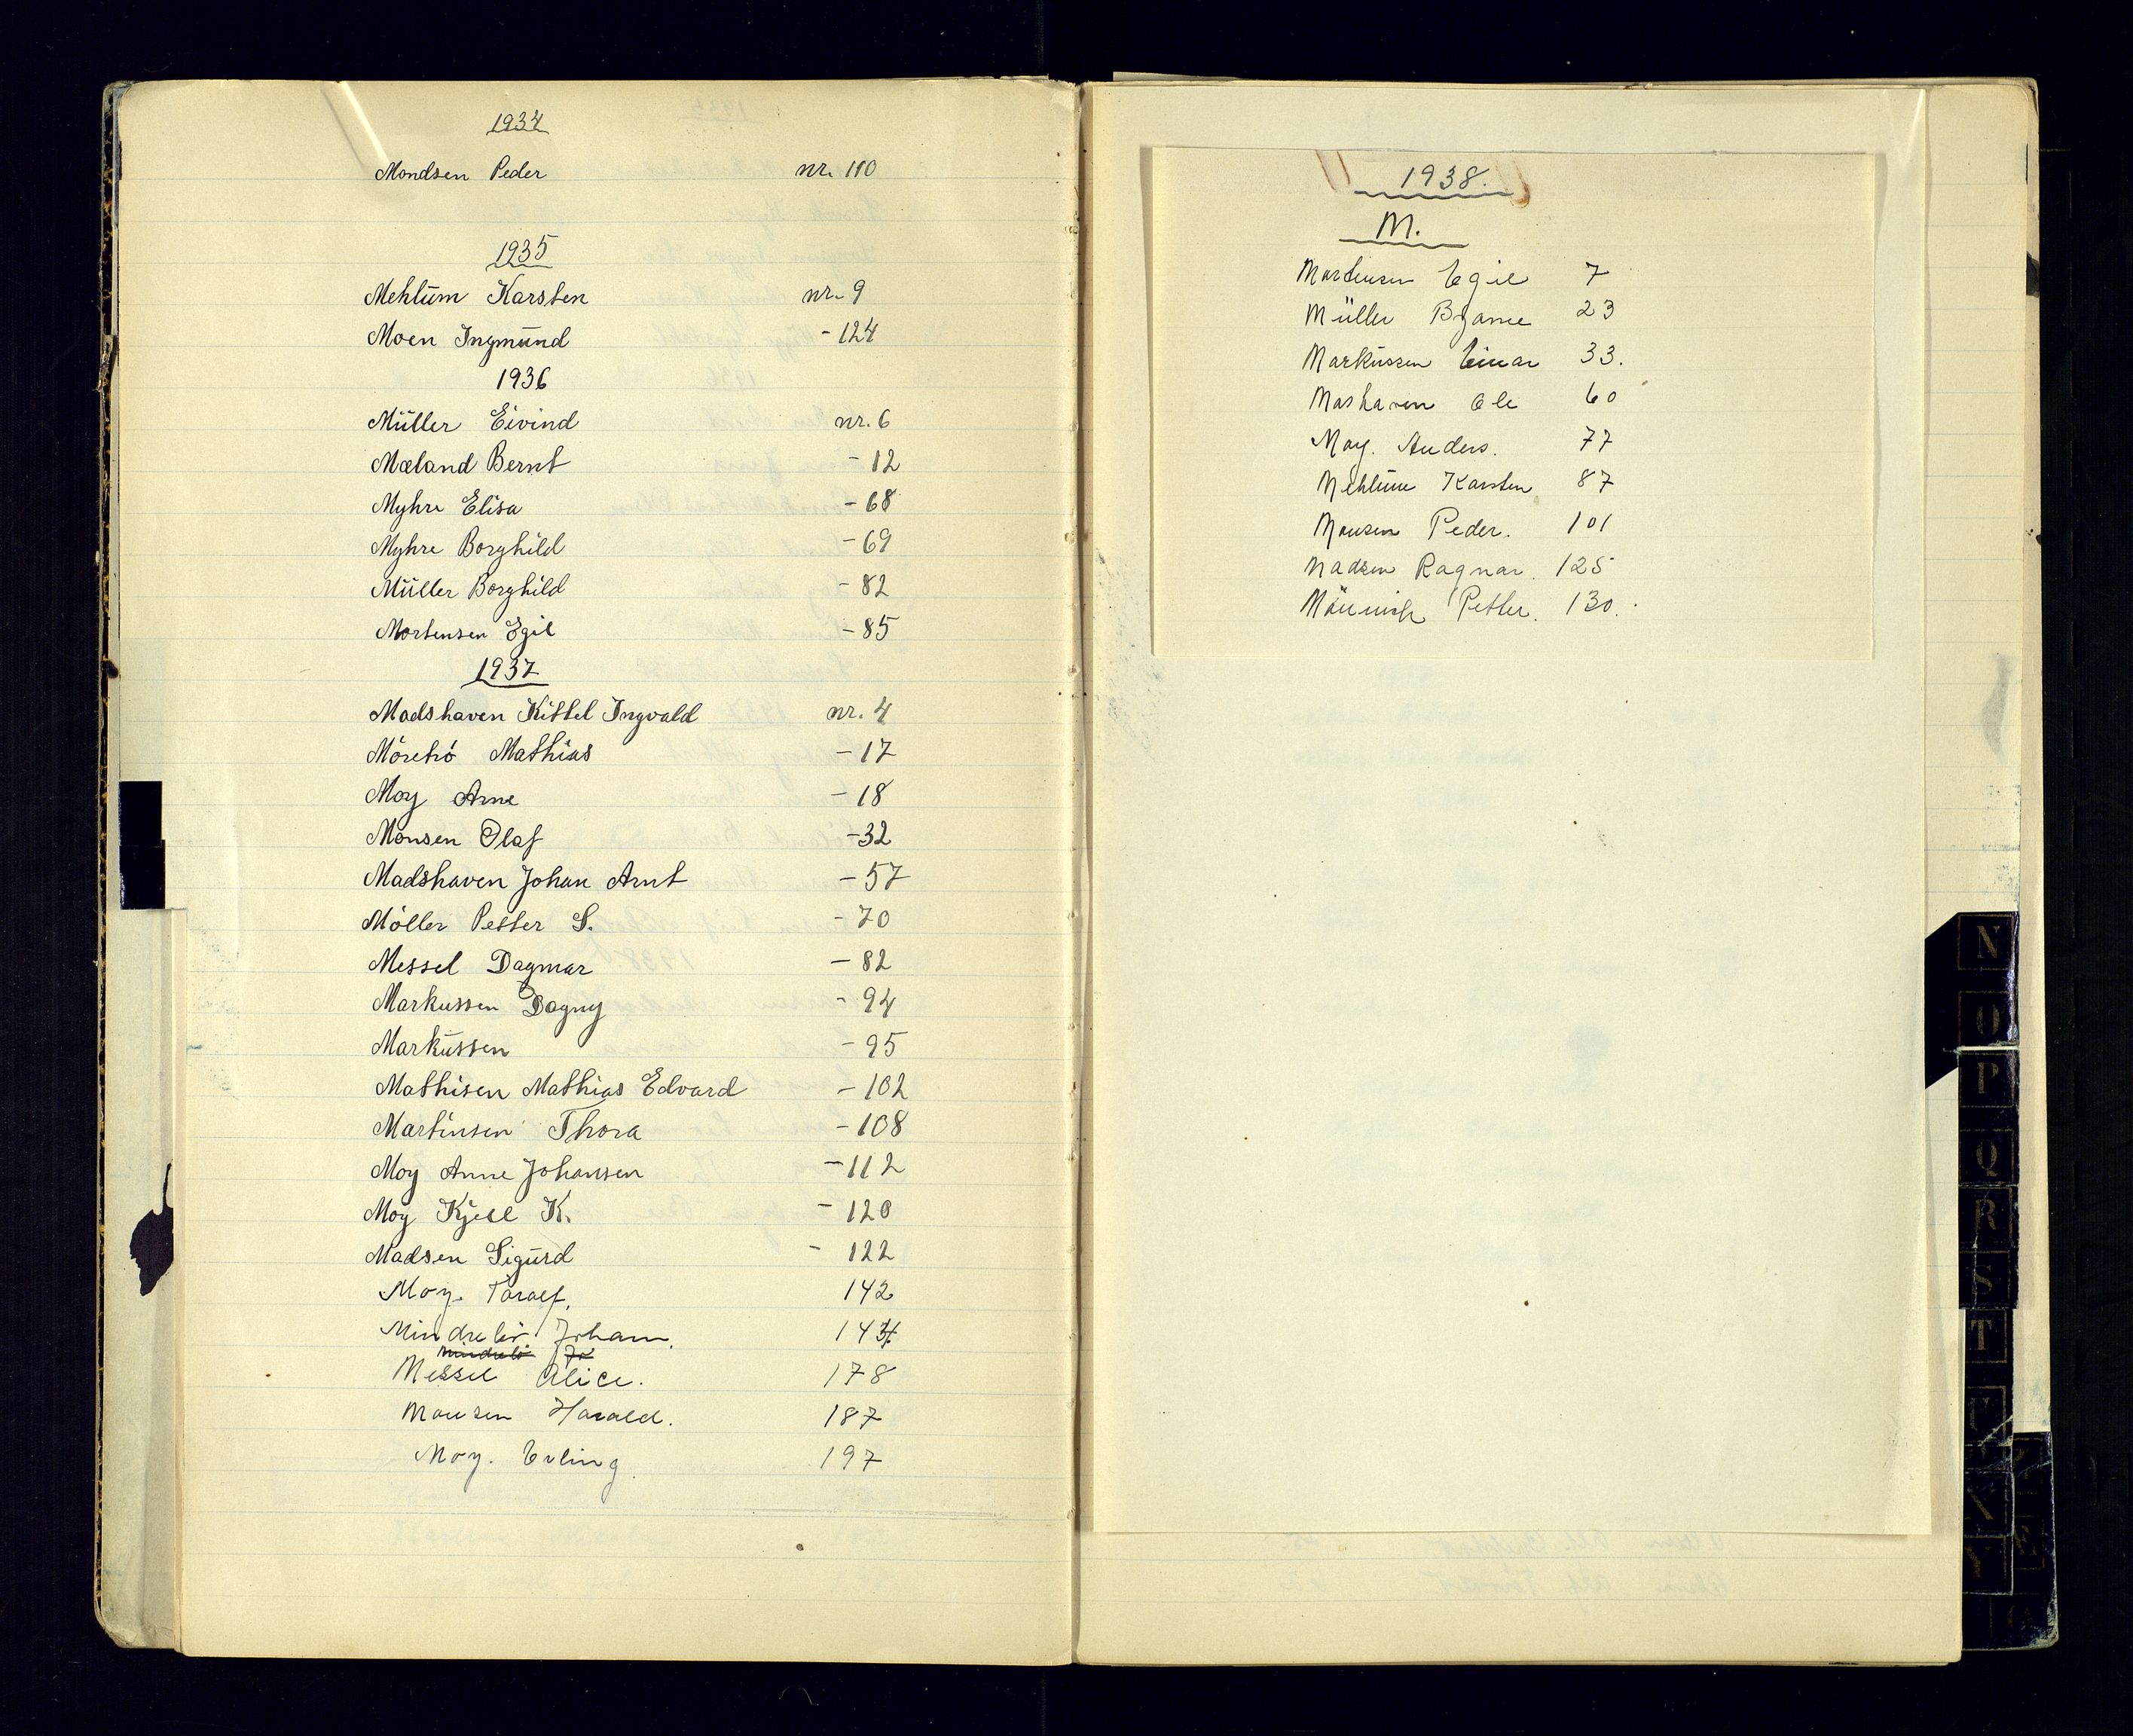 1934
Mondsen Peder nr. 110
1935
Mehlum Karsten nr. 9
Moen Ingmund - 124
1936
Müller Eivind nr. 6
Mæland Bernt - 12
Myhre Elisa - 68
Myhre Borghild - 69
Müller Borghild - 82
Mortensen Egil - 85
1937
Madshaven Kittel Ingvald nr. 4
Möretrö Mathias - 17
Moy Arne - 18
Monsen Olaf - 32
Madshaven Johan Arnt - 57
Möller Petter S. - 70
Messel Dagmar - 82
Markussen Dagny - 94
Markussen - 95
Mathisen Mathias Edvard - 102
Martinsen Thora - 108
Moy Anne Johansen - 112
Moy Kjell K. - 120
Madsen Sigurd - 122
Moy. Taralf. 142
Mindrebö Johan. 144
Messel Alice. 178
Monsen Harald. 187
Moy. Erling. 197
1938.
M.
Mortensen Egil 7
Müller Bjarne 23
Markussen Einar 33.
Mashaven Ole 60
Moy. Anders. 77
Mehlum Karsten 87
Monsen Peder. 101
Madsen Ragnar. 125
Petter. 130.
N
O
P
Q
R
S
T
U